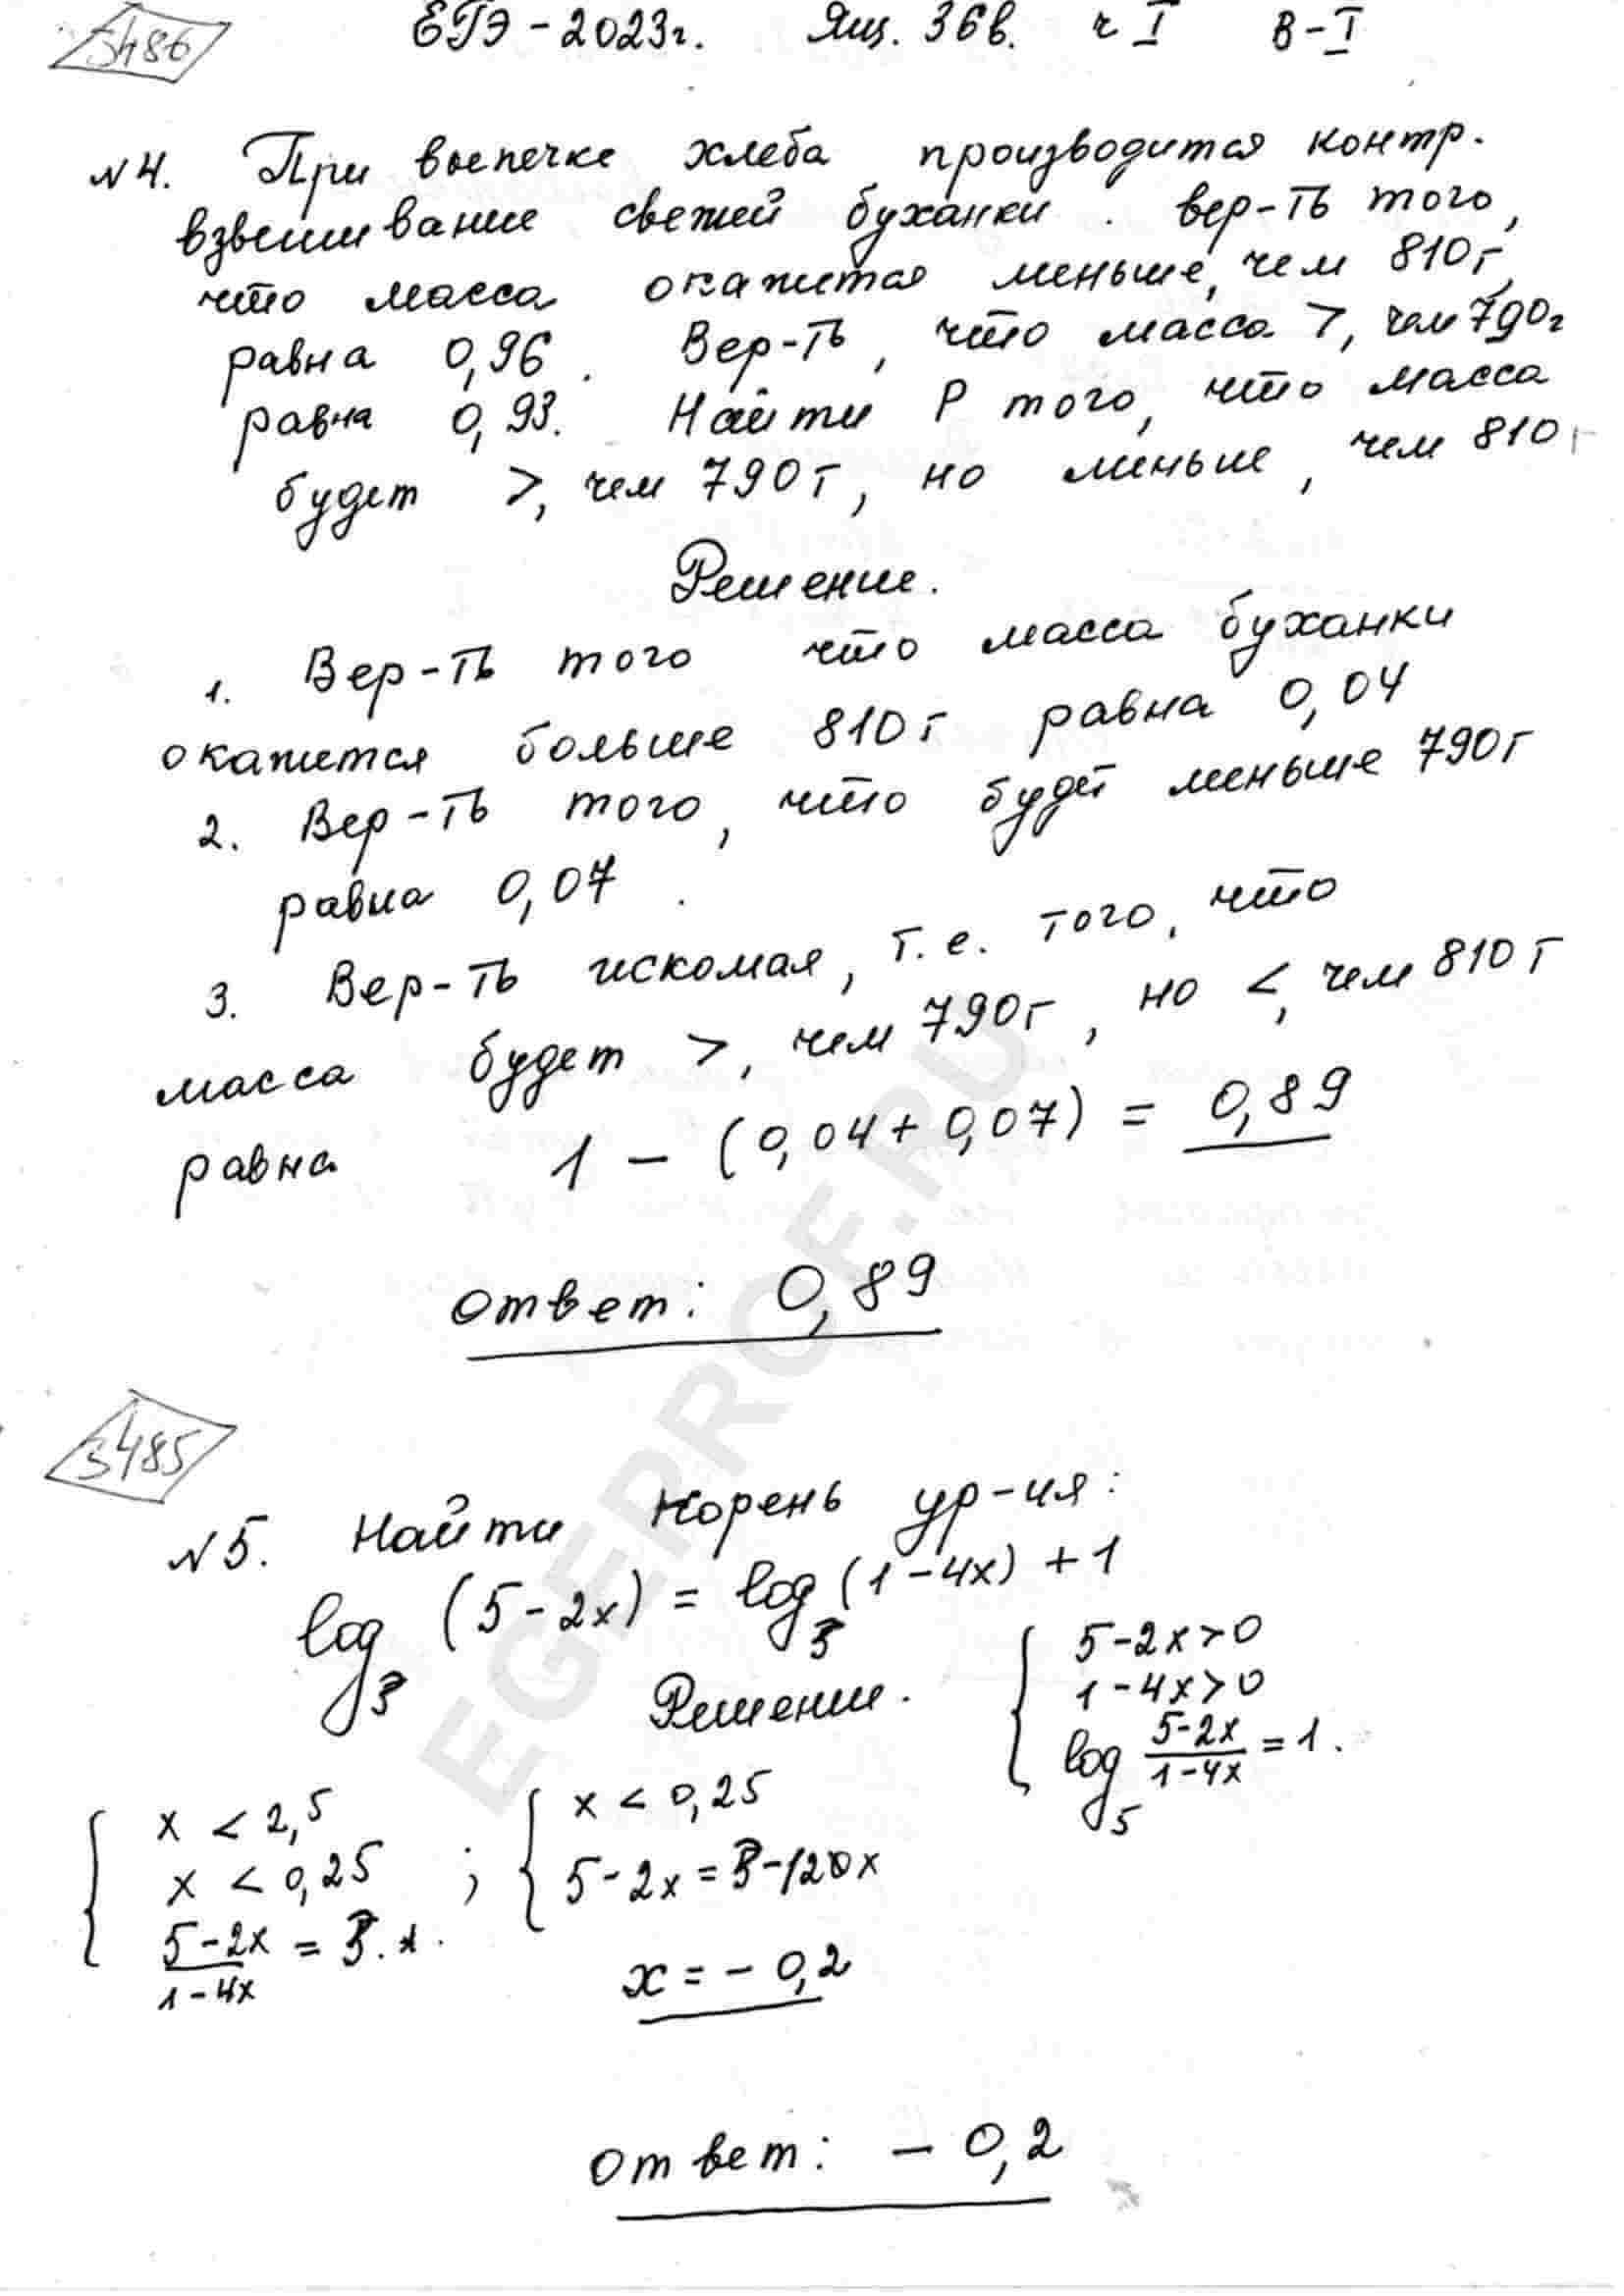 5486 ЕГЭ-2023г. Ящ. 36в. ч I В-I
№4. При выпечке хлеба производится контр.
взвешивание свежей буханки. Вер-ть того,
что масса окажется меньше, чем 810г,
равна 0,96. Вер-ть, что масса >, чем 790г
равна 0,93. Найти Р того, что масса
будет >, чем 790г, но меньше, чем 810г
Решение.
1. Вер-ть того что масса буханки
окажется больше 810г равна 0,04
2. Вер-ть того, что будет меньше 790г
равна 0,07.
3. Вер-ть искомая, т.е. того, что
масса будет >, чем 790г, но <, чем 810г
равна 1 - (0,04 + 0,07) = 0,89
Ответ: 0,89
EGEPROF.RU
5485
№5. Найти корень ур-ия:
log₃ (5-2x) = log₃ (1-4x) + 1
Решение.
{ 5-2x>0
1-4x>0
log₅ (5-2x)/(1-4x) = 1.
{ x < 2,5
x < 0,25 ;
(5-2x)/(1-4x) = 3.
{ x < 0,25
5-2x = 3-12x
x = -0,2
Ответ: -0,2